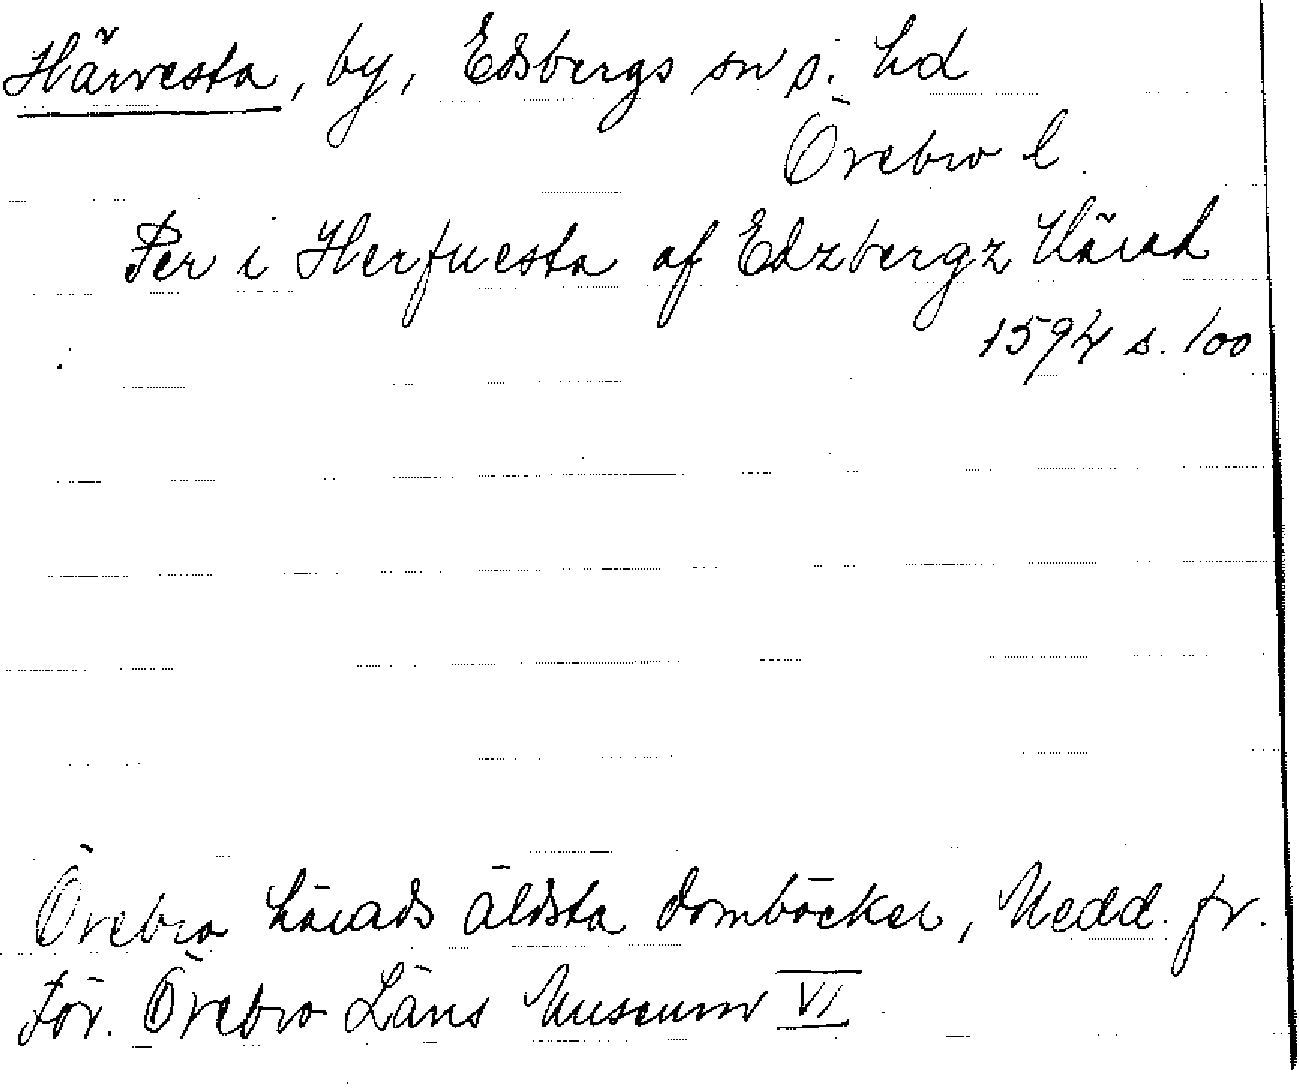 Härvesta, by, Edsbergs sn o. hd
Örebro l.
Per i Herfuesta af Edzbergz Härad
1594 s. 100
Örebro härads äldsta domböcker, Medd. fr.
För. Örebro Läns Museum VI